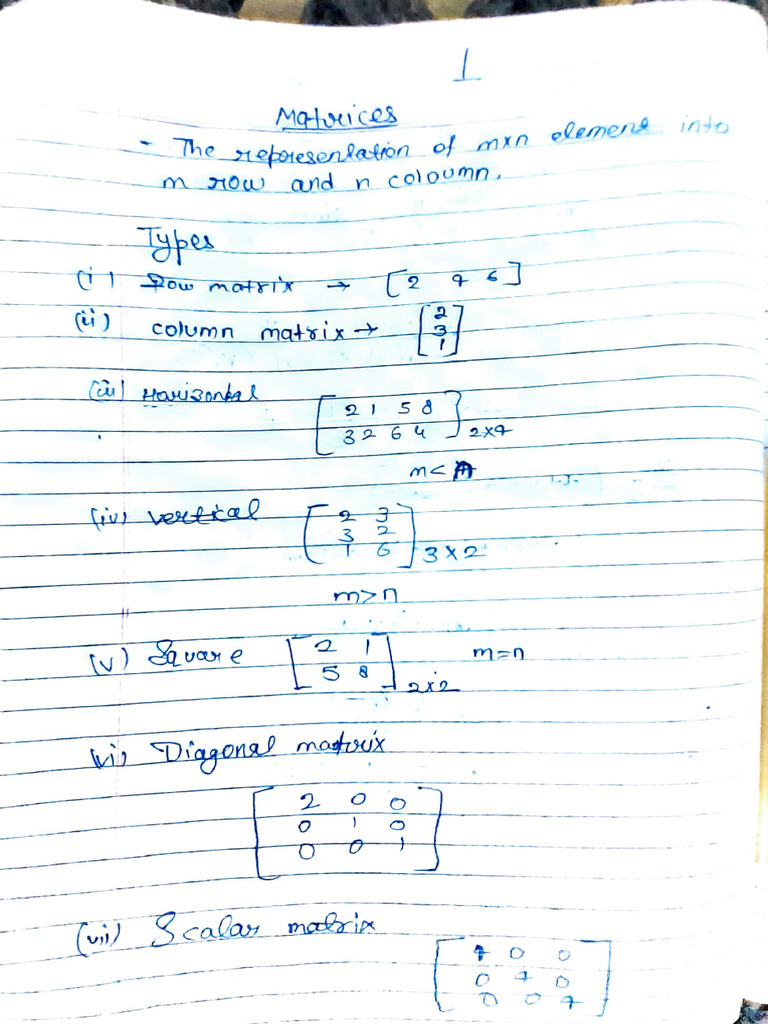 1
Matrices
- The representation of mxn element into
m row and n coloumn.
Types
(i) Row matrix → [2 4 6]
(ii) column matrix → [2
3
1]
(iii) Horizontal [2 1 5 8
3 2 6 4] 2x4
m<n
(iv) vertical [2 3
3 2
1 6] 3x2
m>n
(v) Square [2 1
5 8] 2x2 m=n
(vi) Diagonal matrix
[2 0 0
0 1 0
0 0 1]
(vii) Scalar matrix
[4 0 0
0 4 0
0 0 4]